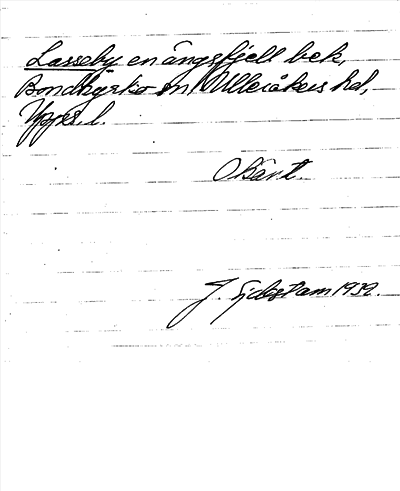 Lasseby en ängsfjell bek,
Bondkyrko sn Ulleråkers hd,
Upps. l.
Okänt.
J. Sjöstam 1939.